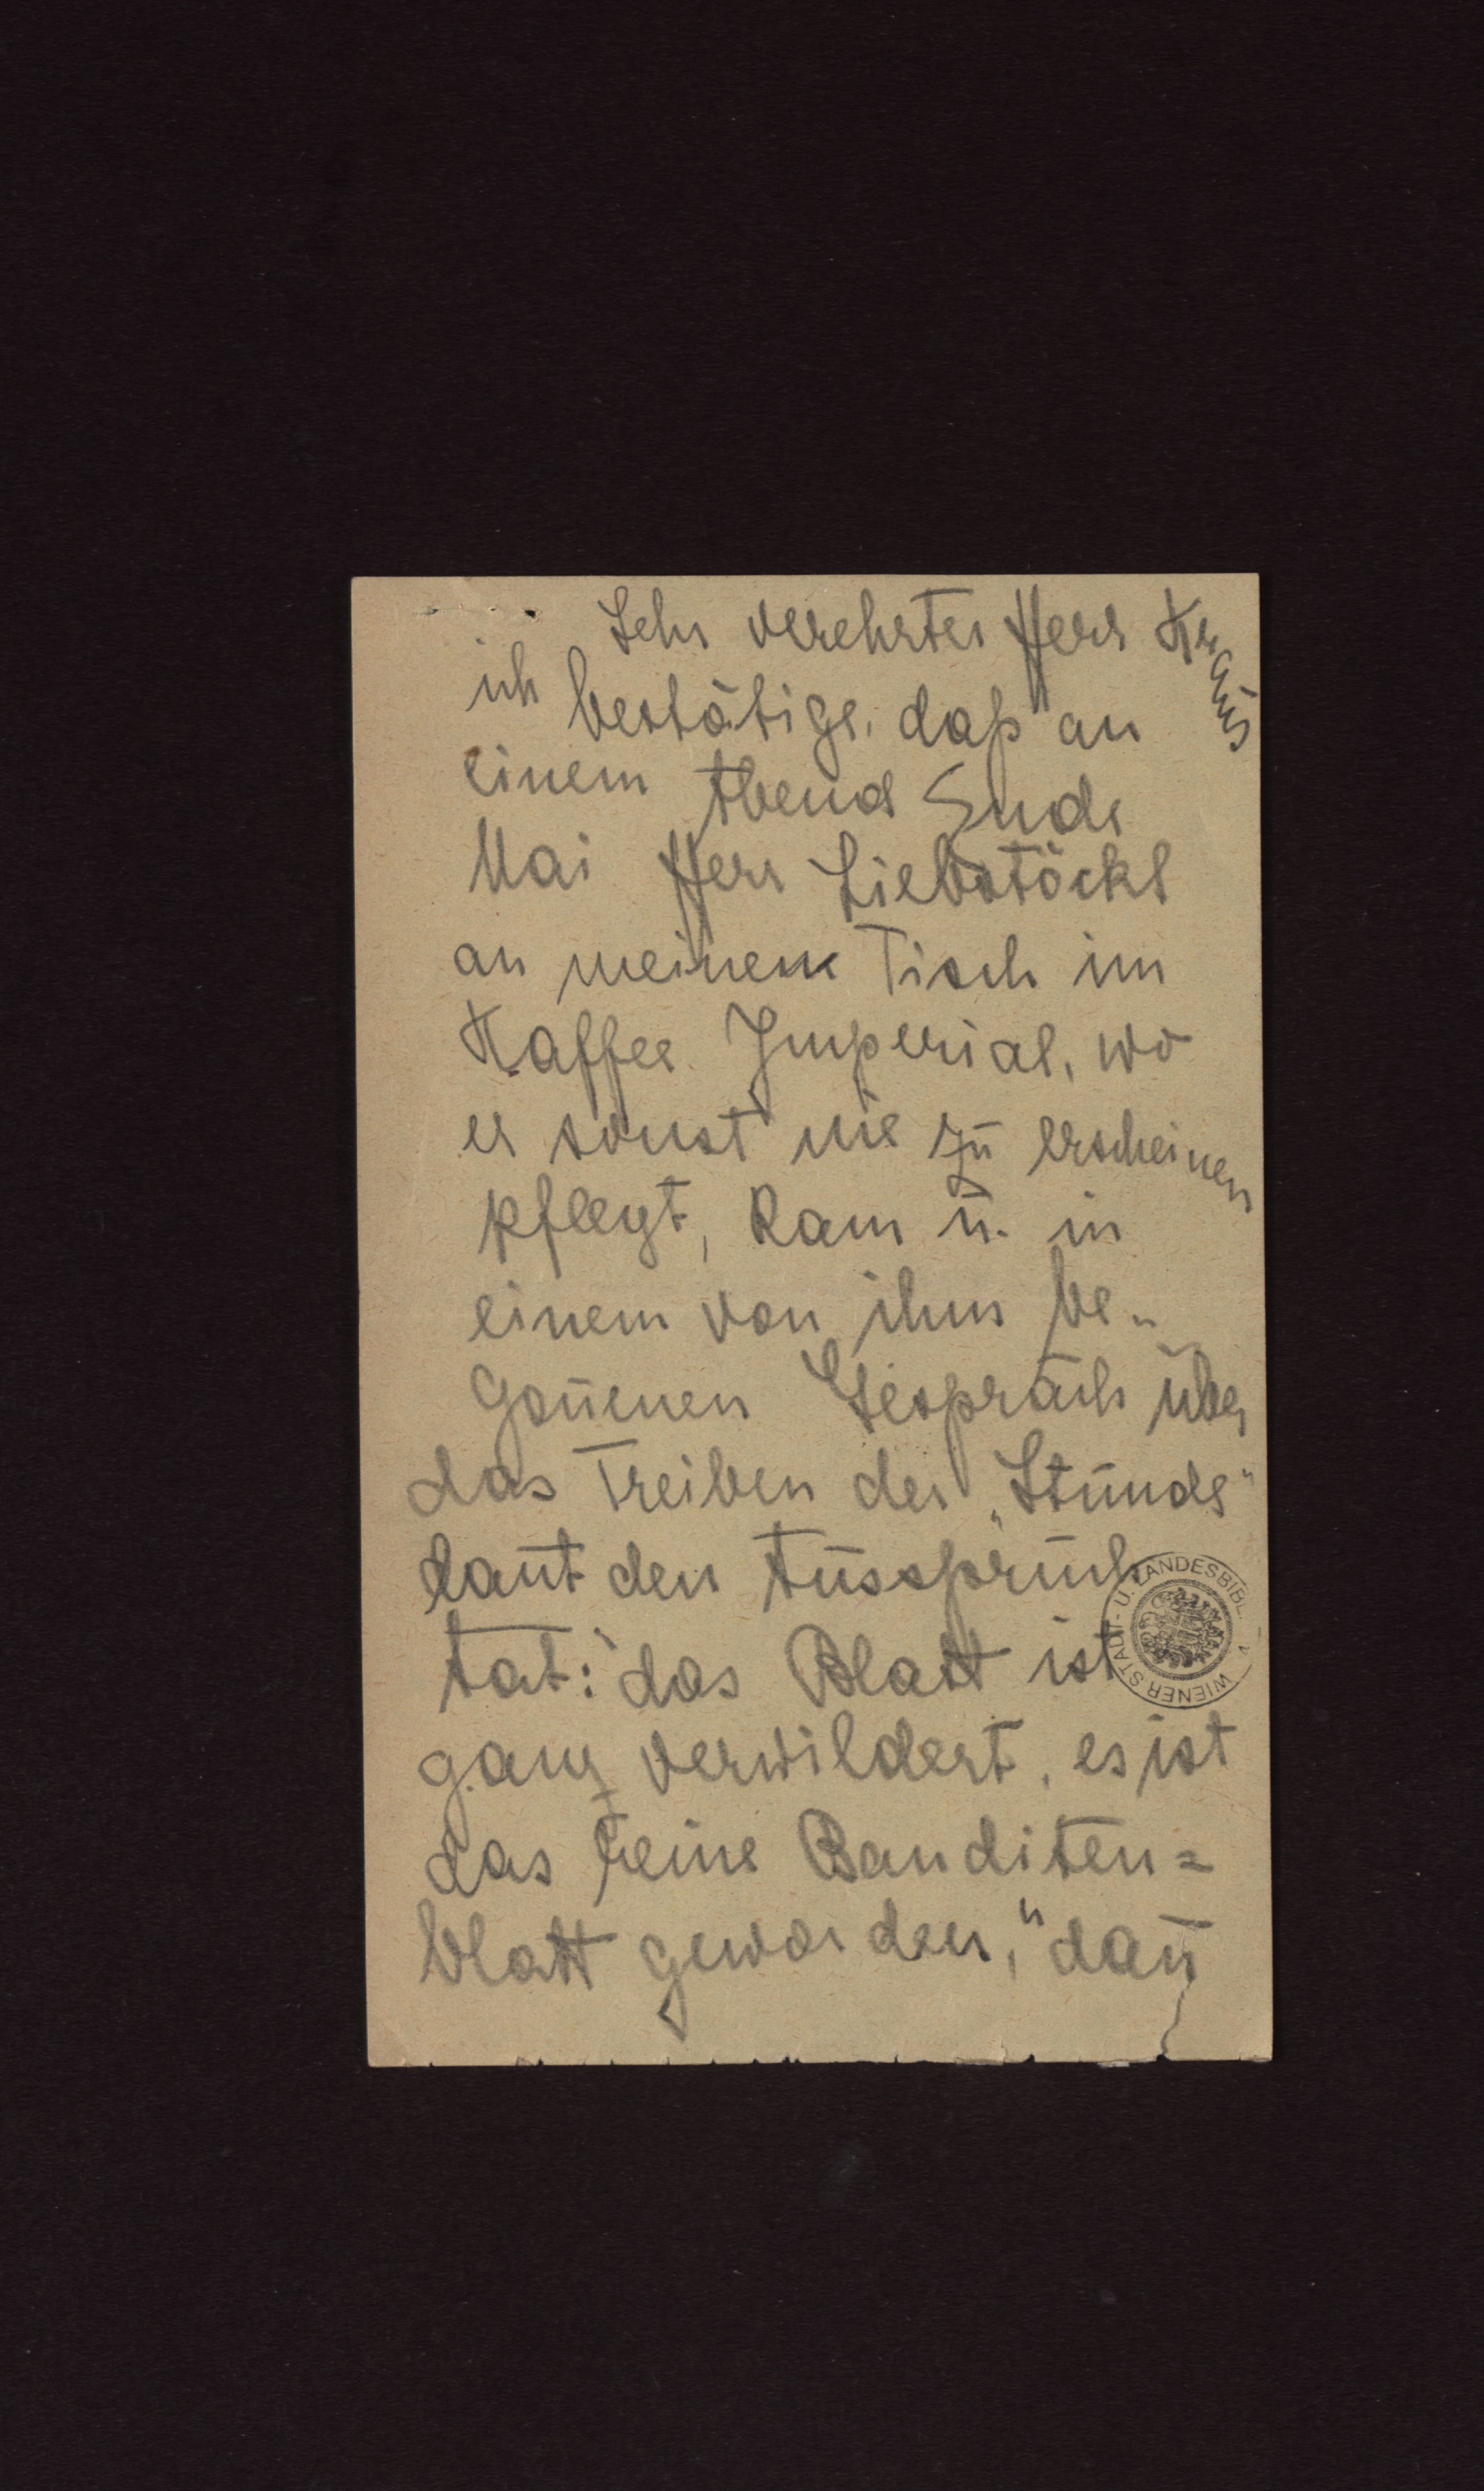 Sehr verehrter Herr Kraus
ich bestätige, daß an
einem Abend Ende
Mai Herr Liebstöckl
an meinem Tisch im
Kaffee Imperial, wo
er sonst nie zu erscheinen
pflegt, kam u. in
einem von ihm be-
gon̄enen Gespräch über
das Treiben der „Stunde“
laut den Ausspruch
tat: "das Blatt ist
ganz verwildert, es ist
das reine Banditen=
blatt geworden," dan̄
WIENER STADT- U. LANDESBIBL.